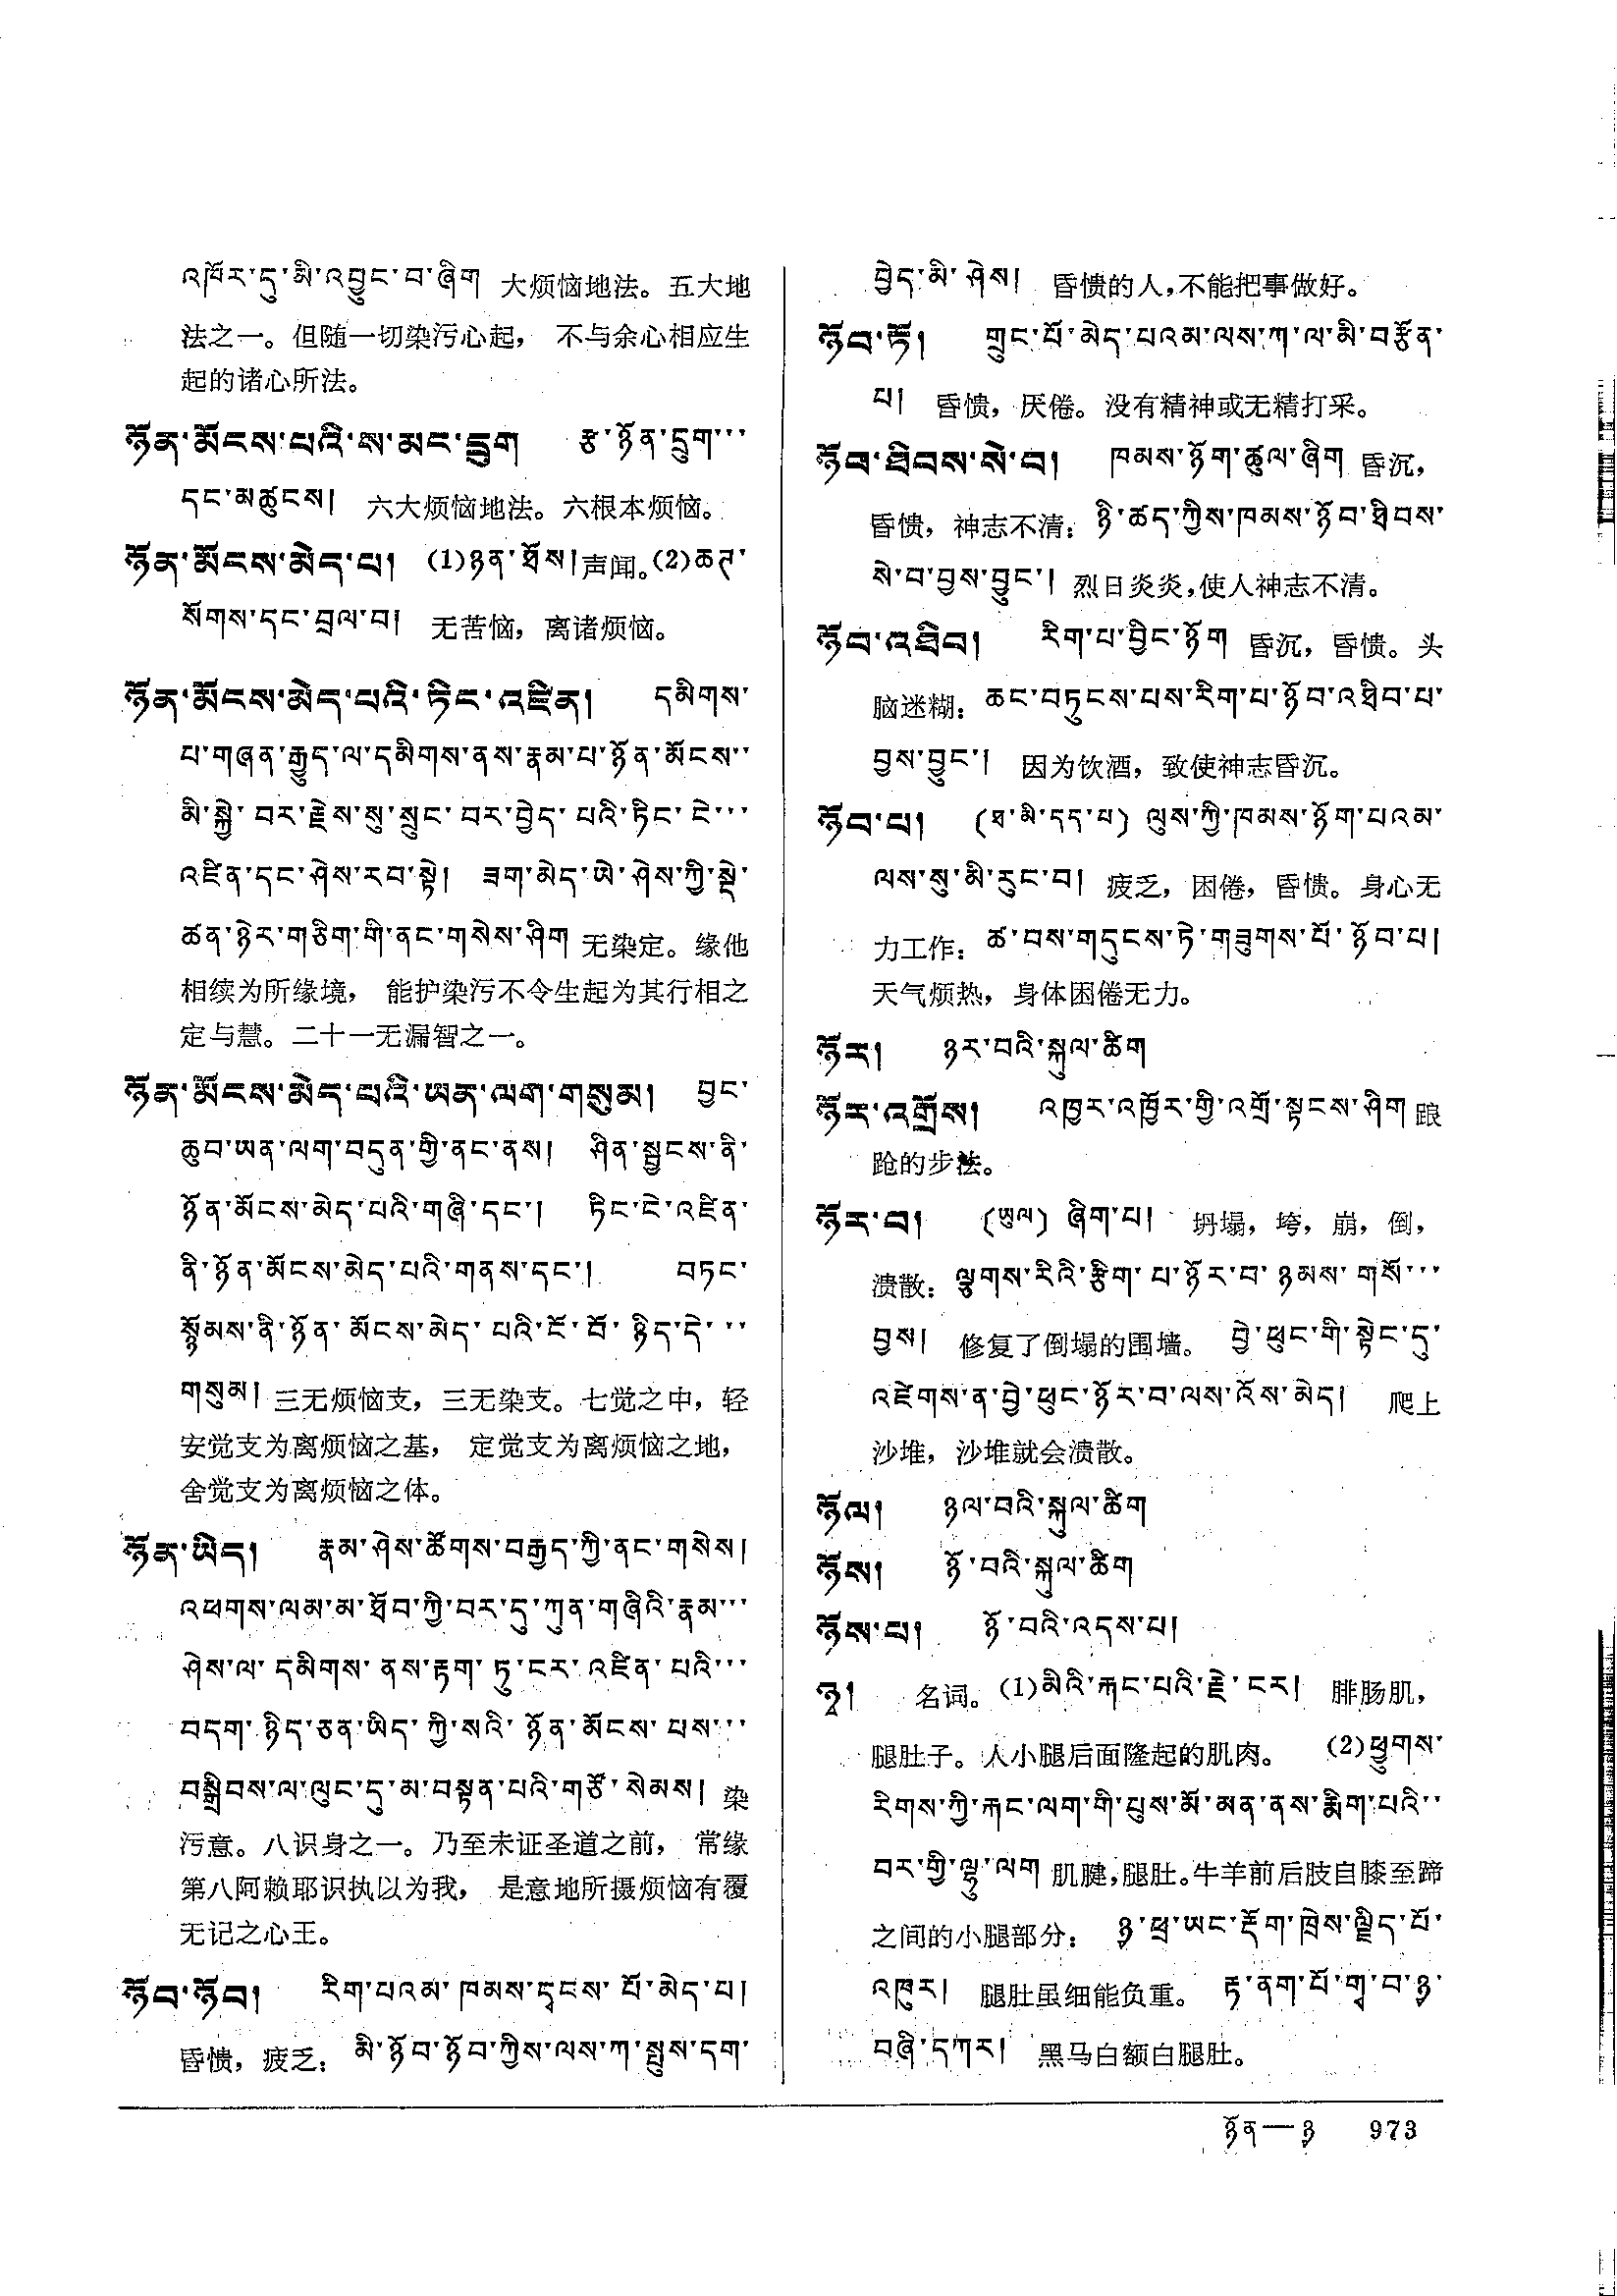 འཁོར་དུ་མི་འབྱུང་བ་ཞིག 大烦恼地法。五大地
法之一。但随一切染污心起， 不与余心相应生
起的诸心所法。
ཉོན་མོངས་པའི་ས་མང་དྲུག རྩ་ཉོན་དྲུག་་་
དང་མཚུངས། 六大烦恼地法。六根本烦恼。
ཉོན་མོངས་མེད་པ། (1)ཉན་ཐོས།声闻。(2)ཆཊ་
སོགས་དང་བྲལ་བ། 无苦恼，离诸烦恼。
ཉོན་མོངས་མེད་པའི་ཏིང་འཛིན། དམིགས་
པ་གཞན་རྒྱུད་ལ་དམིགས་ནས་རྣམ་པ་ཉོན་མོངས་་
མི་སྐྱེ་བར་རྗེས་སུ་སྲུང་བར་བྱེད་པའི་ཏིང་ངེ་་་
འཛིན་དང་ཤེས་རབ་སྟེ། ཟག་མེད་ཡེ་ཤེས་ཀྱི་སྡེ་
ཚན་ཉེར་གཅིག་གི་ནང་གསེས་ཤིག 无染定。缘他
相续为所缘境， 能护染污不令生起为其行相之
定与慧。二十一无漏智之一。
ཉོན་མོངས་མེད་པའི་ཡན་ལག་གསུམ། བྱང་
ཆུབ་ཡན་ལག་བདུན་གྱི་ནང་ནས། ཤིན་སྦྱངས་ནི་
ཉོན་མོངས་མེད་པའི་གཞི་དང་། ཏིང་ངེ་འཛིན་
ནི་ཉོན་མོངས་མེད་པའི་གནས་དང་། བཏང་
སྙོམས་ནི་ཉོན་མོངས་མེད་པའི་ངོ་བོ་ཉིད་དེ་་་
གསུམ། 三无烦恼支，三无染支。七觉之中，轻
安觉支为离烦恼之基， 定觉支为离烦恼之地，
舍觉支为离烦恼之体。
ཉོན་ཡིད། རྣམ་ཤེས་ཚོགས་བརྒྱད་ཀྱི་ནང་གསེས།
འཕགས་ལམ་མ་ཐོབ་ཀྱི་བར་དུ་ཀུན་གཞིའི་རྣམ་་་
ཤེས་ལ་དམིགས་ནས་རྟག་ཏུ་ངར་འཛིན་པའི་་་
བདག་ཉིད་ཅན་ཡིད་ཀྱི་སའི་ཉོན་མོངས་པས་་་
བསྒྲིབས་ལ་ལུང་དུ་མ་བསྟན་པའི་གཙོ་སེམས། 染
污意。八识身之一。乃至未证圣道之前， 常缘
第八阿赖耶识执以为我， 是意地所摄烦恼有覆
无记之心王。
ཉོབ་ཉོབ། རིག་པའམ་ཁམས་དྭངས་པོ་མེད་པ།
昏愦，疲乏： མི་ཉོབ་ཉོབ་ཀྱིས་ལས་ཀ་སྤུས་དག་
བྱེད་མི་ཤེས། 昏愦的人，不能把事做好。
ཉོབ་ཏོ། གྲུང་པོ་མེད་པའམ་ལས་ཀ་ལ་མི་བརྩོན་
པ། 昏愦，厌倦。没有精神或无精打采。
ཉོབ་ཐིབས་སེ་བ། ཁམས་ཉོག་ཚུལ་ཞིག 昏沉，
昏愦，神志不清： ཉི་ཚད་ཀྱིས་ཁམས་ཉོབ་ཐིབས་
སེ་བ་བྱས་བྱུང་། 烈日炎炎，使人神志不清。
ཉོབ་འཐིབ། རིག་པ་བྱིང་ཉོག 昏沉，昏愦。头
脑迷糊： ཆང་བཏུངས་པས་རིག་པ་ཉོབ་འཐིབ་པ་
བྱས་བྱུང་། 因为饮酒，致使神志昏沉。
ཉོབ་པ། (ཐ་མི་དད་པ) ལུས་ཀྱི་ཁམས་ཉོག་པའམ་
ལས་སུ་མི་རུང་བ། 疲乏，困倦，昏愦。身心无
力工作： ཚ་བས་གདུངས་ཏེ་གཟུགས་པོ་ཉོབ་པ།
天气烦热，身体困倦无力。
ཉོར། ཉར་བའི་སྐུལ་ཚིག
ཉོར་འགྲོས། འཁྱར་འཁྱོར་གྱི་འགྲོ་སྟངས་ཤིག 踉
跄的步法。
ཉོར་བ། (ཡུལ) ཞིག་པ། 坍塌，垮，崩，倒，
溃散： ལྕགས་རིའི་རྩིག་པ་ཉོར་བ་ཉམས་གསོ་་་
བྱས། 修复了倒塌的围墙。 བྱེ་ཕུང་གི་སྟེང་དུ་
འཛེགས་ན་བྱེ་ཕུང་ཉོར་བ་ལས་འོས་མེད། 爬上
沙堆，沙堆就会溃散。
ཉོལ། ཉལ་བའི་སྐུལ་ཚིག
ཉོས། ཉོ་བའི་སྐུལ་ཚིག
ཉོས་པ། ཉོ་བའི་འདས་པ།
ཉྭ། 名词。(1)མིའི་རྐང་པའི་རྗེ་ངར། 腓肠肌，
腿肚子。人小腿后面隆起的肌肉。 (2)ཕྱུགས་
རིགས་ཀྱི་རྐང་ལག་གི་པུས་མོ་མན་ནས་རྨིག་པའི་་
བར་གྱི་ལྷུ་ལག 肌腱，腿肚。牛羊前后肢自膝至蹄
之间的小腿部分： ཉྭ་ཕྲ་ཡང་རྡོག་ཁྲེས་ལྗིད་པོ་
འཁུར། 腿肚虽细能负重。 རྟ་ནག་པོ་གྭ་བ་ཉྭ་
བཞི་དཀར། 黑马白额白腿肚。
ཉོན—ཉྭ 973